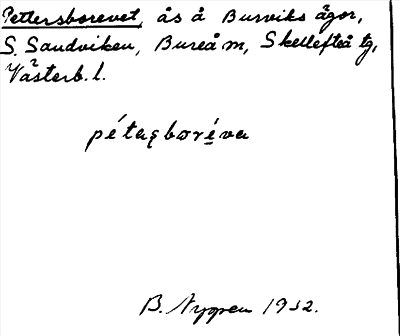 Pettersborevet, ås å Burviks ägor,
S. Sandviken, Bureå m, Skellefteå tg,
Västerb. l.
pétaʂborı́va
B. Nygren 1932.